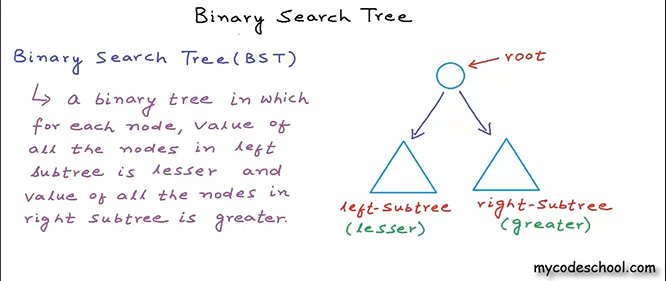 Binary Search Tree
Binary Search Tree (BST)
↳ a binary tree in which
for each node, value of
all the nodes in left
subtree is lesser and
value of all the nodes in
right subtree is greater.
root
left-subtree
(lesser)
right-subtree
(greater)
mycodeschool.com